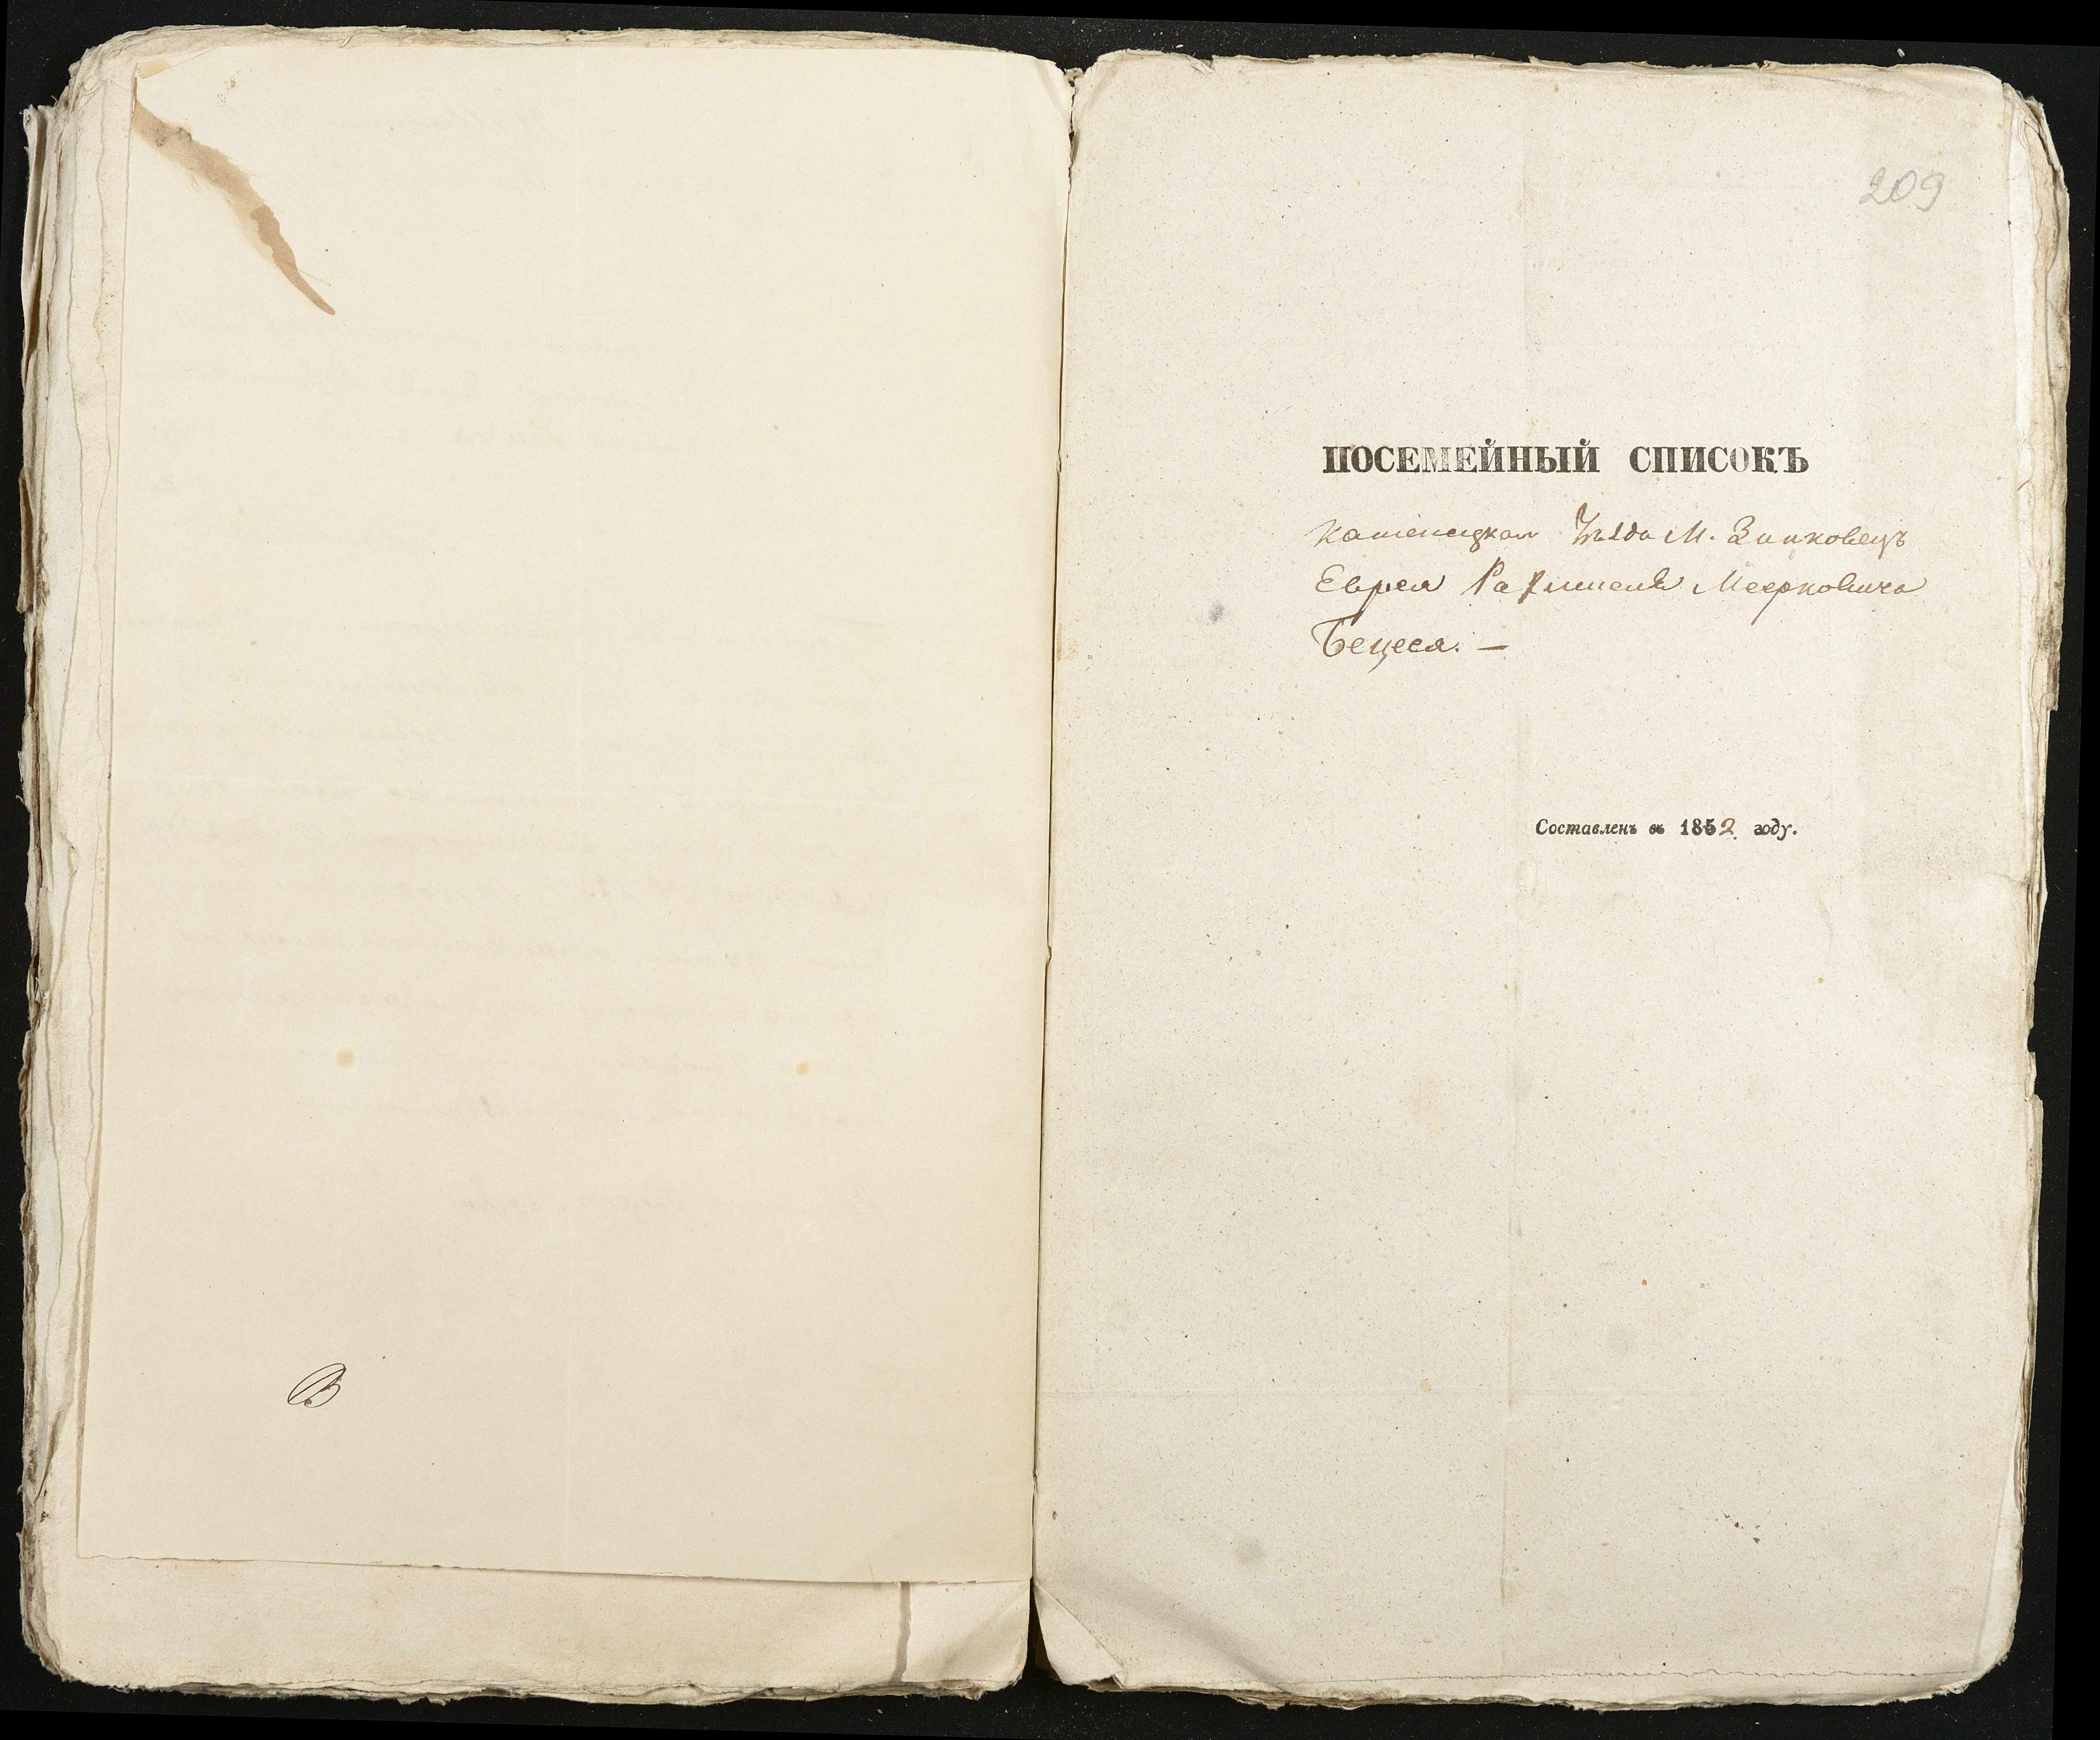 В
209
ПОСЕМЕЙНЫЙ СПИСОКЪ
Каменецкаго Уѣзда М. Зинковецъ
Еврея Рахмиеля Меерковича
Бецеся. —
Составленъ въ 1852 году.